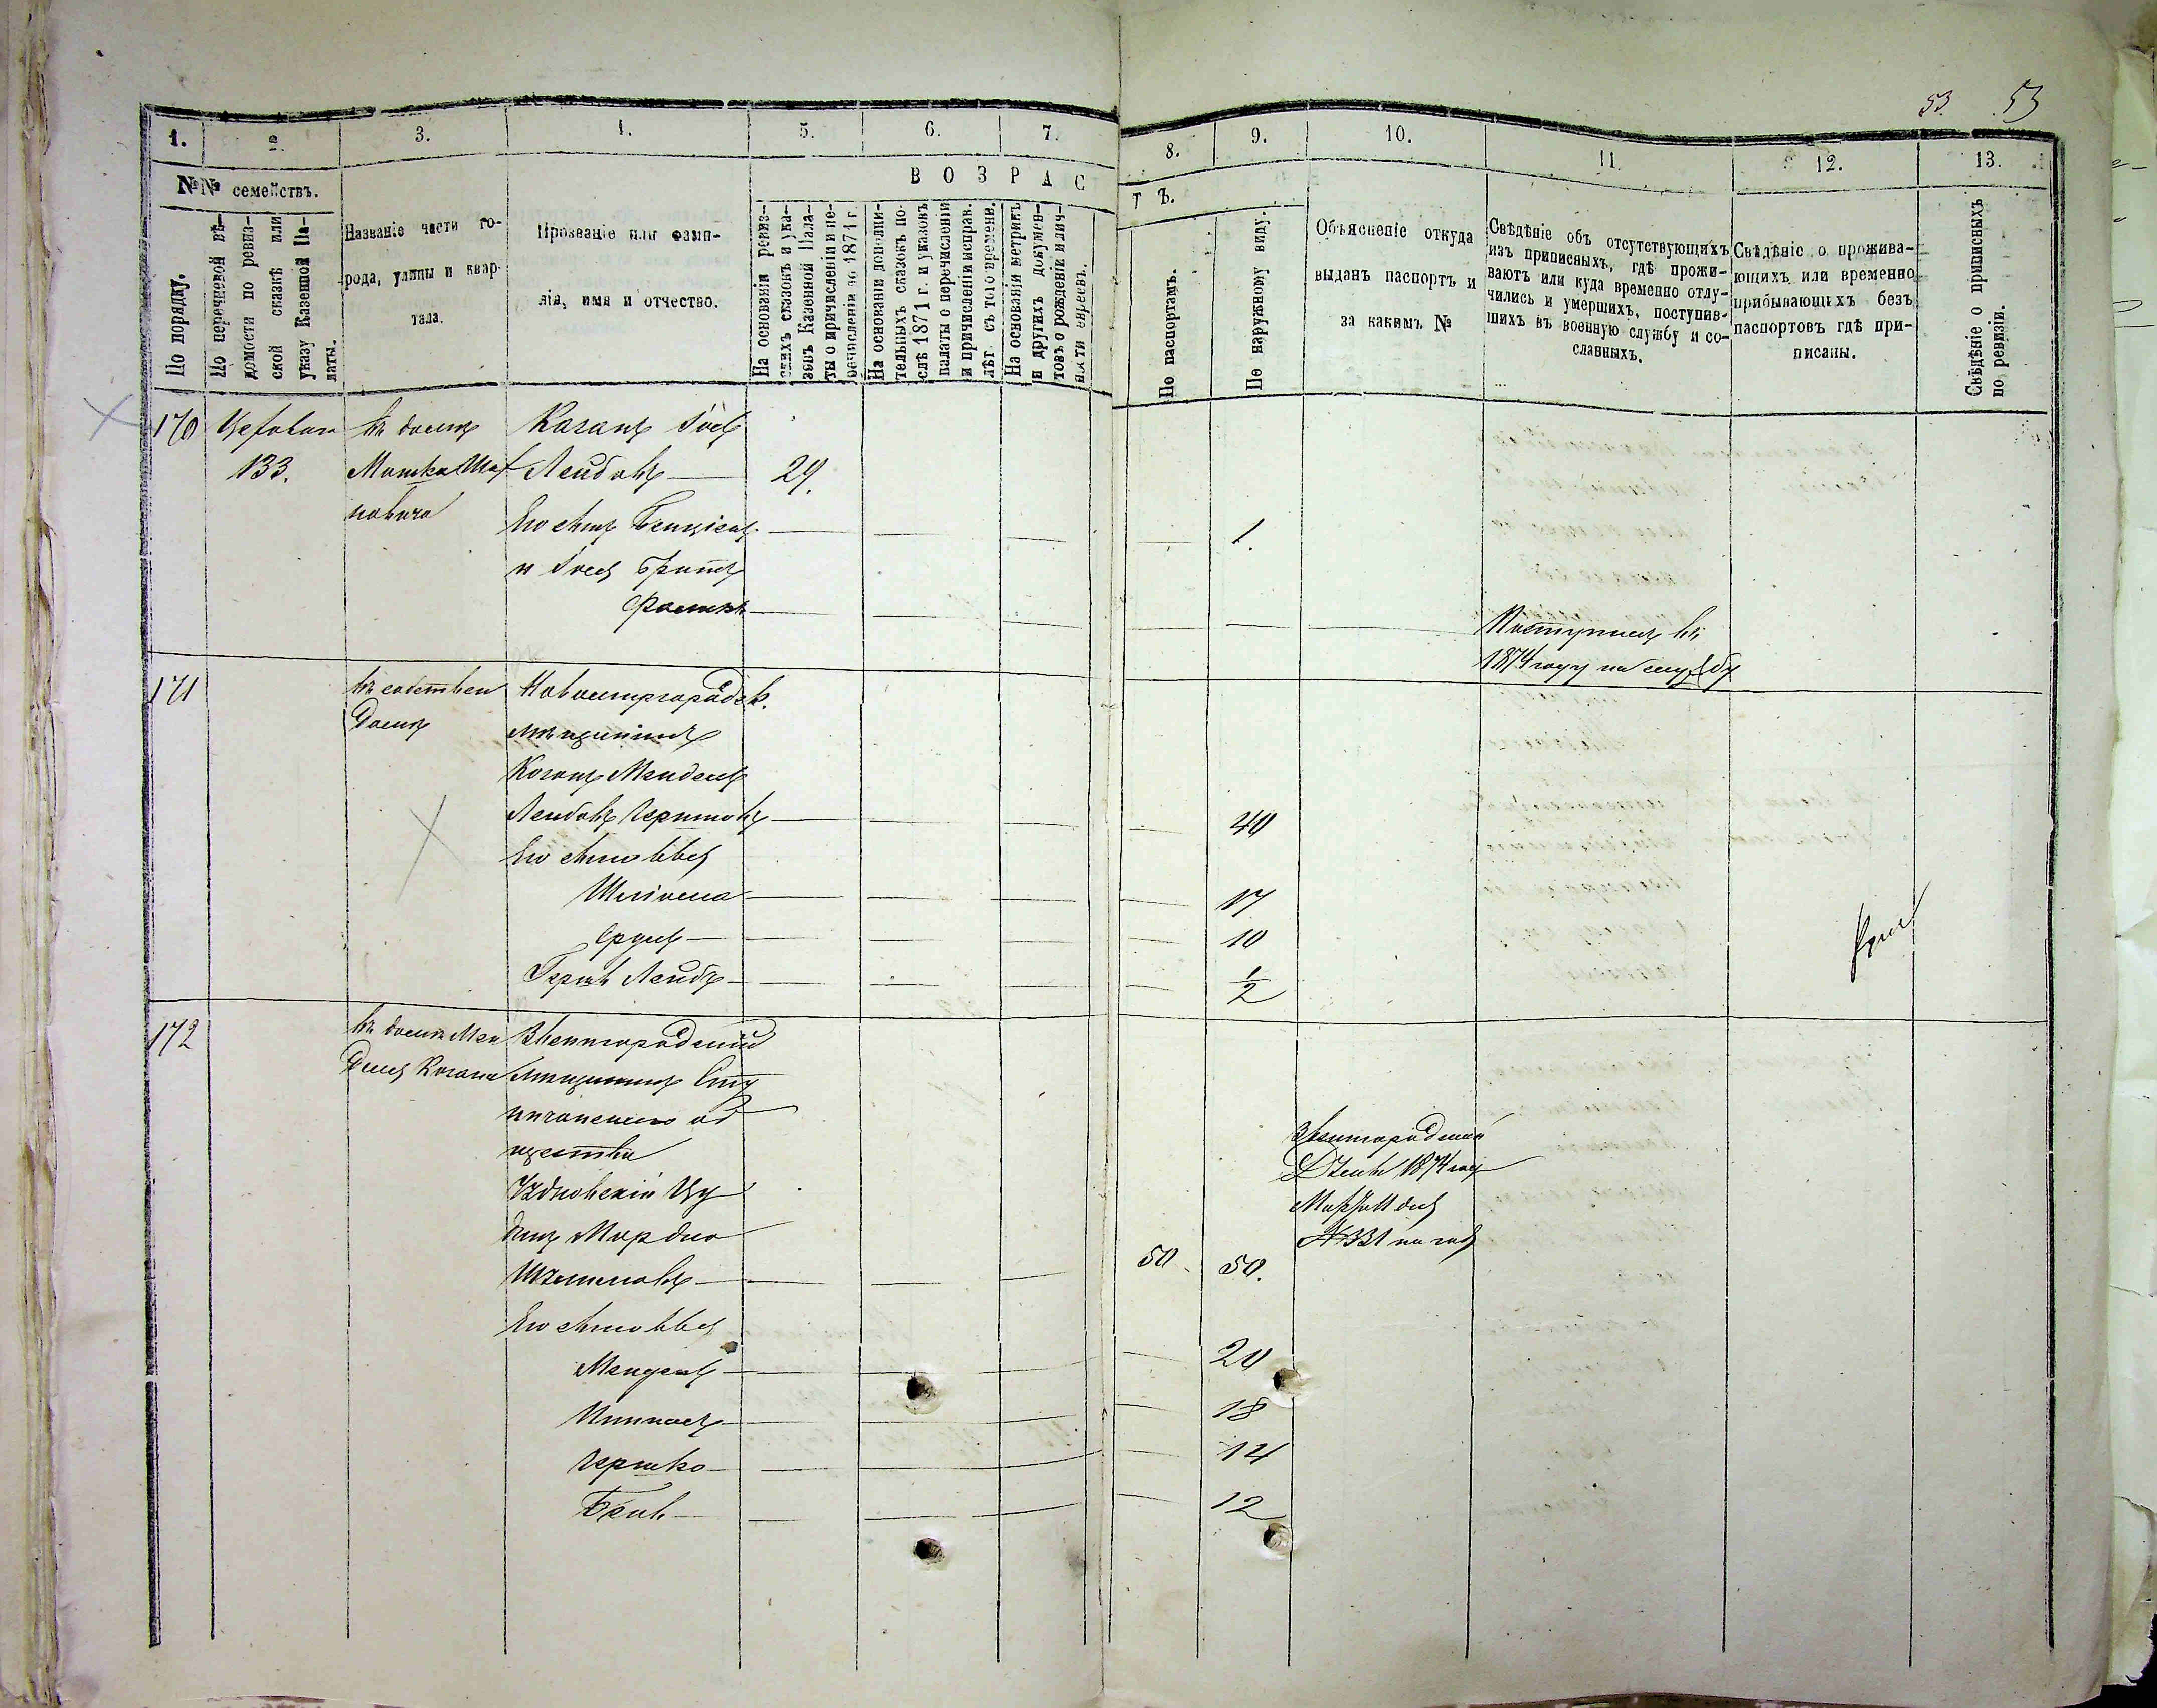 53. 53
1. 2. 3. 4. 5. 6. 7. 8. 9. 10. 11. 12. 13.
№№ семействъ.
По порядку.
По перечневой вѣ-
домости по ревиз-
ской сказкѣ или
указу Казенной Па-
латы.
Названіе части го-
рода, улицы и квар-
тала.
Прозваніе или фами-
лія, имя и отчество.
ВОЗРАСТЪ.
На основаніи ревиз-
скихъ сказокъ и ука-
зовъ Казенной Пала-
ты о причисленіи и пе-
речисленіи до 1871 г.
На основаніи дополни-
тельныхъ сказокъ по-
слѣ 1871 г. и указовъ
палаты о перечисленіи
и причисленіи исправ.
лѣт. съ того времени.
На основаніи метрикъ
и другихъ докумен-
товъ о рожденіи и лич-
ности евреевъ.
По паспортамъ.
По наружному виду.
Объясненіе откуда
выданъ паспортъ и
за какимъ №
Свѣдѣніе объ отсутствующихъ
изъ приписныхъ, гдѣ прожи-
ваютъ или куда временно отлу-
чились и умершихъ, поступив-
шихъ въ военную службу и со-
сланныхъ.
Свѣдѣніе о прожива-
ющихъ или временно
прибывающихъ безъ
паспортовъ гдѣ при-
писаны.
Свѣдѣніе о приписныхъ
по ревизіи.
170 въ домѣ Коганъ
133. Мошка Лейбовъ 29.
Его сынъ 1.
и
Поступилъ въ
1874 году на службу
171 въ собствен
домѣ
мѣщанинъ
Коганъ Мендель
Лейбовъ Гершковъ 40
Его сыновья
Шліома 17
Сруль 10
Гершъ Лейбъ 1/2
172 въ домѣ Мен
деля Когана
Звенигородскій
мѣщанинъ
общества
Мордко
50 50.
Его сыновья
Мендель 20
Пинхасъ 18
Гершко 14
Бень 12
Звенигородской
1874 году
Марта дня
№ 331 на годъ